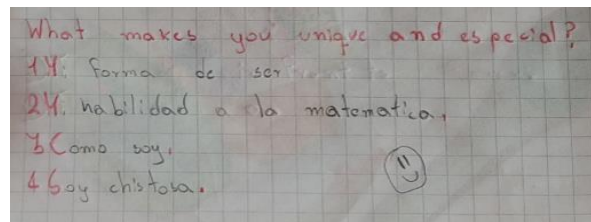 What makes you unique and especial?
1 Mi forma de ser
2 Mi habilidad a la matematica,
3 Como soy.
4 Soy chistosa.